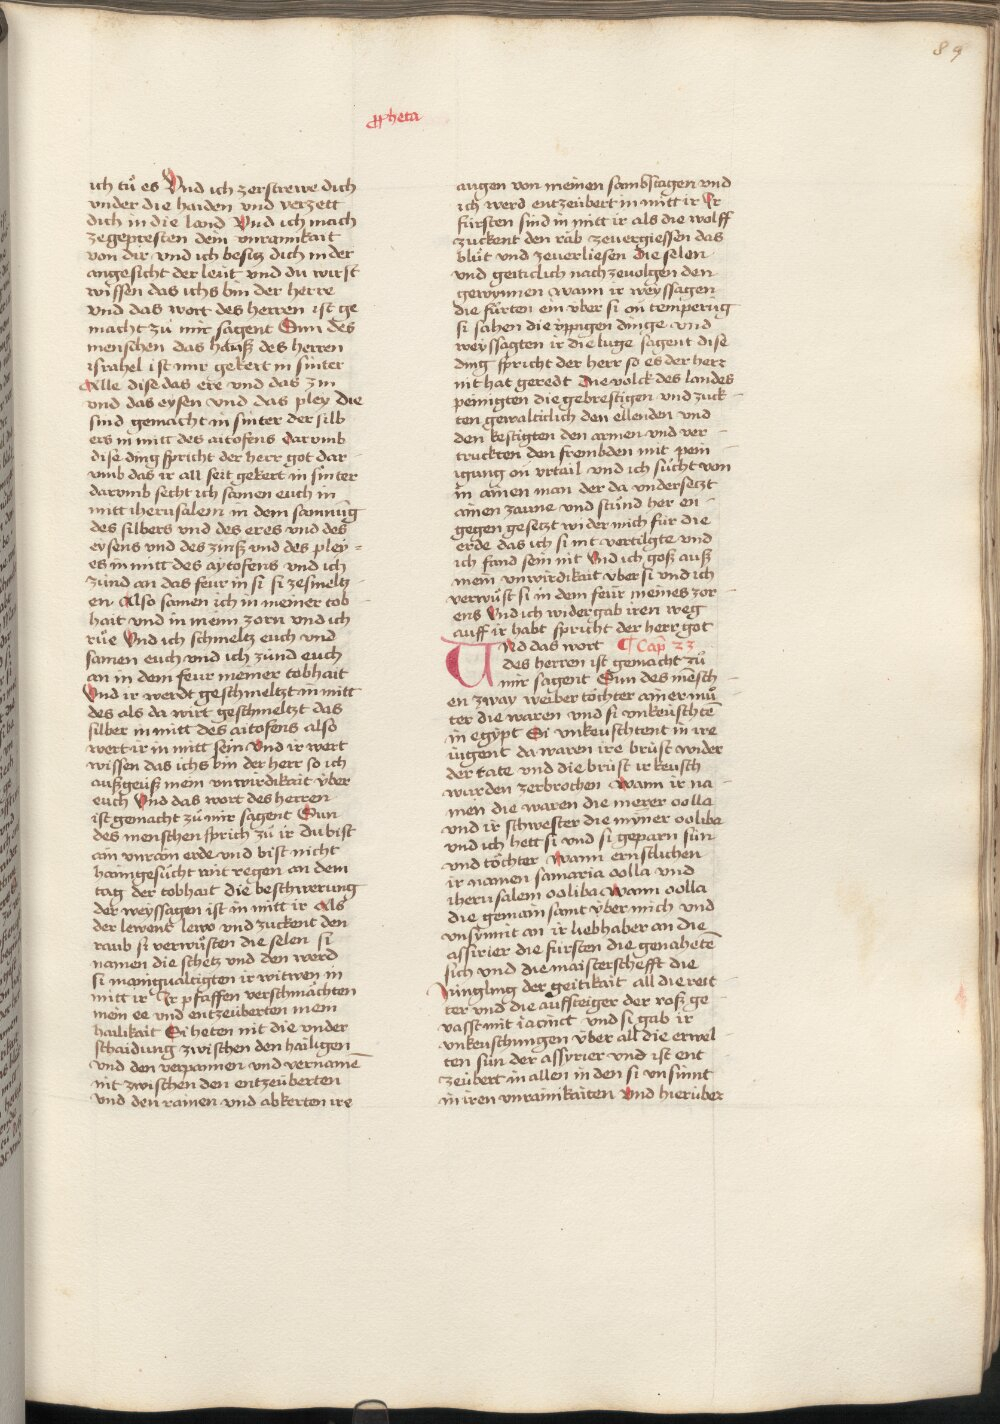 89
ꝓheta
ich tuͦ es Vnd ich zerstrewe dich
vnder die haiden vnd verzett
dich in die land Vnd ich mach
zegepresten dein vnrainikait
von dir vnd ich besitz dich in der
angesicht der leut vnd du wirst
wissen das ichs bin der herre
vnd das wort des herren ist ge
macht zu mir sagent Sun des
menschen das hauß des herren
israhel ist mir gekert in sinter
Alle dise das ere vnd das zin
vnd das eysen vnd das pley die
sind gemacht in sinter der silb
ers in mitt des aitofens darumb
dise ding spricht der herr got dar
vmb das ir all seit gekert in sinter
darumb secht ich samen euch in
mitt iherusalem in dem samnug
des silbers vnd des eres vnd des
eysens vnd des zinß vnd des pley=
es in mitt des aytofens vnd ich
zünd an das feur in si si zesmeltz
en Also samen ich in meiner tob
hait vnd in meim zorn vnd ich
rue Vnd ich schmeltz euch vnd
samen euch vnd ich zünd euch
an in dem feur meiner tobhait
Vnd ir werdt geschmeltzt in mitt
des als da wirt geschmeltzt das
silber in mitt des aitofens also
wert ir in mitt sein Vnd ir wert
wissen das ichs bin der herr so ich
außgeuß mein vnwirdikait vber
euch Vnd das wort des herren
ist gemacht zu mir sagent Sun
des menschen sprich zu ir du bist
ain vnrain erde vnd bist nicht
haimgesücht mit regen an dem
tag der tobhait die beschwerung
der weyssagen ist in mitt ir Als
der lewent lewo vnd zuckent den
raub si verwüsten die selen si
namen die schetz vnd den werd
si manigualtigten ir witwen in
mitt ir Ir pfaffen verschmächten
mein ee vnd entzeuberten mein
hailikait Si heten nit die vnder
schaidung zwischen den hailigen
vnd den verpannen vnd vernamē
nit zwischen den entzeuberten
vnd den rainen vnd abkerten ire
augen von meinen sambstagen vnd
ich werd entzeubert in mitt ir Ir
fürsten sind in mitt ir als die wolff
zuckent den rab zeuergiessen das
blüt vnd zeuerliesen die selen
vnd geiticlich nach zeuolgen den
gewynnen Wann ir weyssagen
die fürten ein vber si on temperūg
si sahen die vppigen dinge vnd
weyssagten ir die luge sagent dise
ding spricht der herr so es der herr
nit hat geredt Die volck des landes
peinigten die gebrestigen vnd zuck
ten gewalticlich den ellenden vnd
den kestigten den armen vnd ver
truckten den frembden mit pein
igung on vrtail vnd ich sücht von
in ainen man der da vndersetzt
ainen zaune vnd stünd her en
gegen gesetzt wider mich für die
erde das ich si nit vertilgte vnd
ich fand sein nit Vnd ich goß auß
mein vnwirdikait vber si vnd ich
verwüst si in dem feur meines zor
ens Vnd ich widergab iren weg
auff ir habt spricht der herr got
Vnd das wort ¶ Cap 23
des herren ist gemacht zu
mir sagent Sun des mēsch
en zway weiber töchter ainer mu
ter die waren vnd si vnkeuschtē
in egypt Si vnkeuschtent in ire
iugent da waren ire brüst wider
der tate vnd die brüst ir keusch
wurden zerbrochen Wann ir na
men die waren die merer oolla
vnd ir schwester die myner ooliba
vnd ich hett si vnd si geparn sün
vnd töchter Wann ernstlichen
ir namen samaria oolla vnd
iherusalem ooliba Wann oolla
die gemainsamt vber mich vnd
vnsynnit an ir liebhaber an die
assirier die fürsten die genahetē
sich vnd die maisterschefft die
Jüngling der geitikait all die reit
ter vnd die auffsteiger der roß ge
vasst mit iacinct vnd si gab ir
vnkeuschungen vber all die erwel
ten sün der assyrier vnd ist ent
zeubert in allen in den si vnsinnt
in iren vnrainikaiten Vnd hierüber